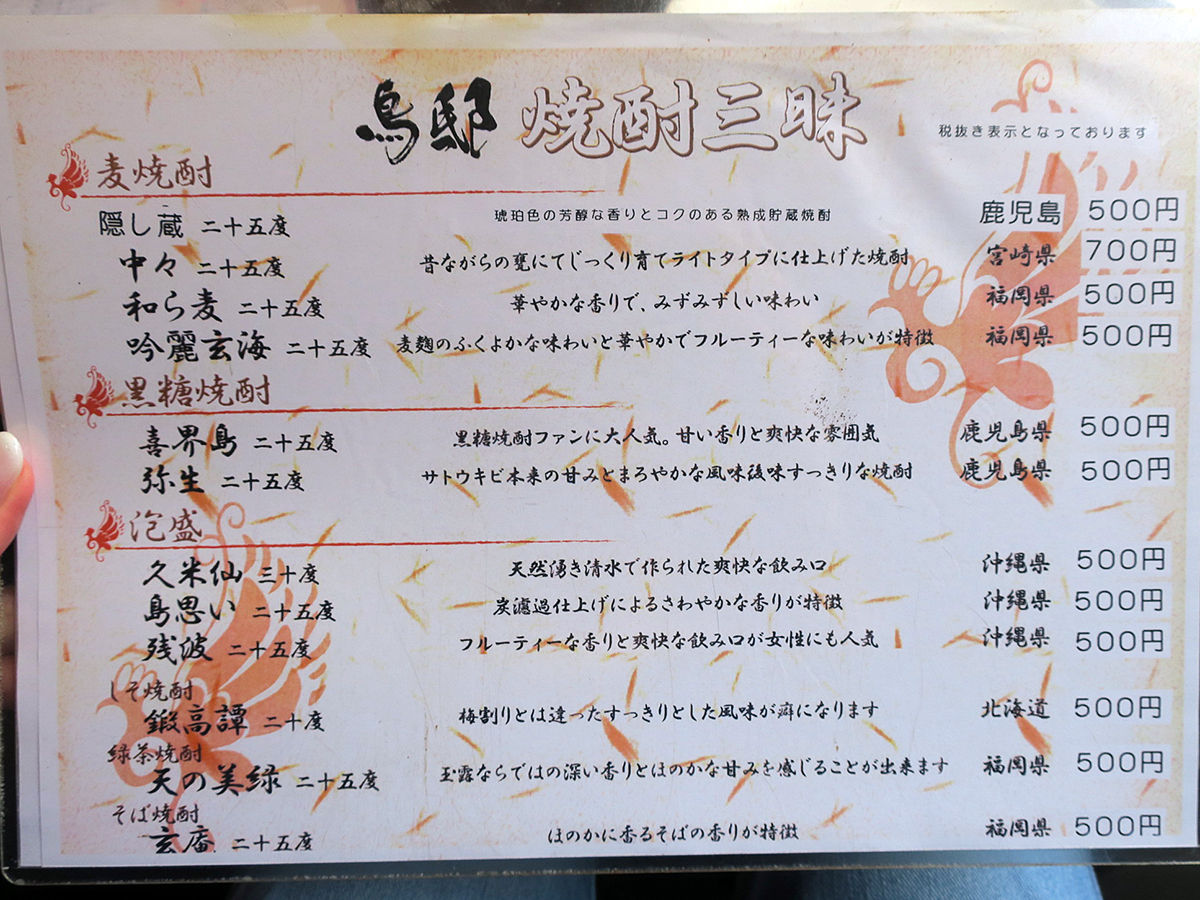 鳥邸 焼酎三昧
税抜き表示となっております
麦焼酎
隠し蔵 二十五度 琥珀色の芳醇な香りとコクのある熟成貯蔵焼酎 鹿児島 500円
中々 二十五度 昔ながらの甕にてじっくり育てライトタイプに仕上げた焼酎 宮崎県 700円
和ら麦 二十五度 華やかな香りで、みずみずしい味わい 福岡県 500円
吟麗玄海 二十五度 麦麹のふくよかな味わいと華やかでフルーティーな味わいが特徴 福岡県 500円
黒糖焼酎
喜界島 二十五度 黒糖焼酎ファンに大人気。甘い香りと爽快な雰囲気 鹿児島県 500円
弥生 二十五度 サトウキビ本来の甘みとまろやかな風味後味すっきりな焼酎 鹿児島県 500円
泡盛
久米仙 三十度 天然湧き清水で作られた爽快な飲み口 沖縄県 500円
島思い 二十五度 炭濾過仕上げによるさわやかな香りが特徴 沖縄県 500円
残波 二十五度 フルーティーな香りと爽快な飲み口が女性にも人気 沖縄県 500円
しそ焼酎
鍛高譚 二十度 梅割りとは違ったすっきりとした風味が癖になります 北海道 500円
緑茶焼酎
天の美緑 二十五度 玉露ならではの深い香りとほのかな甘みを感じることが出来ます 福岡県 500円
そば焼酎
玄庵 二十五度 ほのかに香るそばの香りが特徴 福岡県 500円